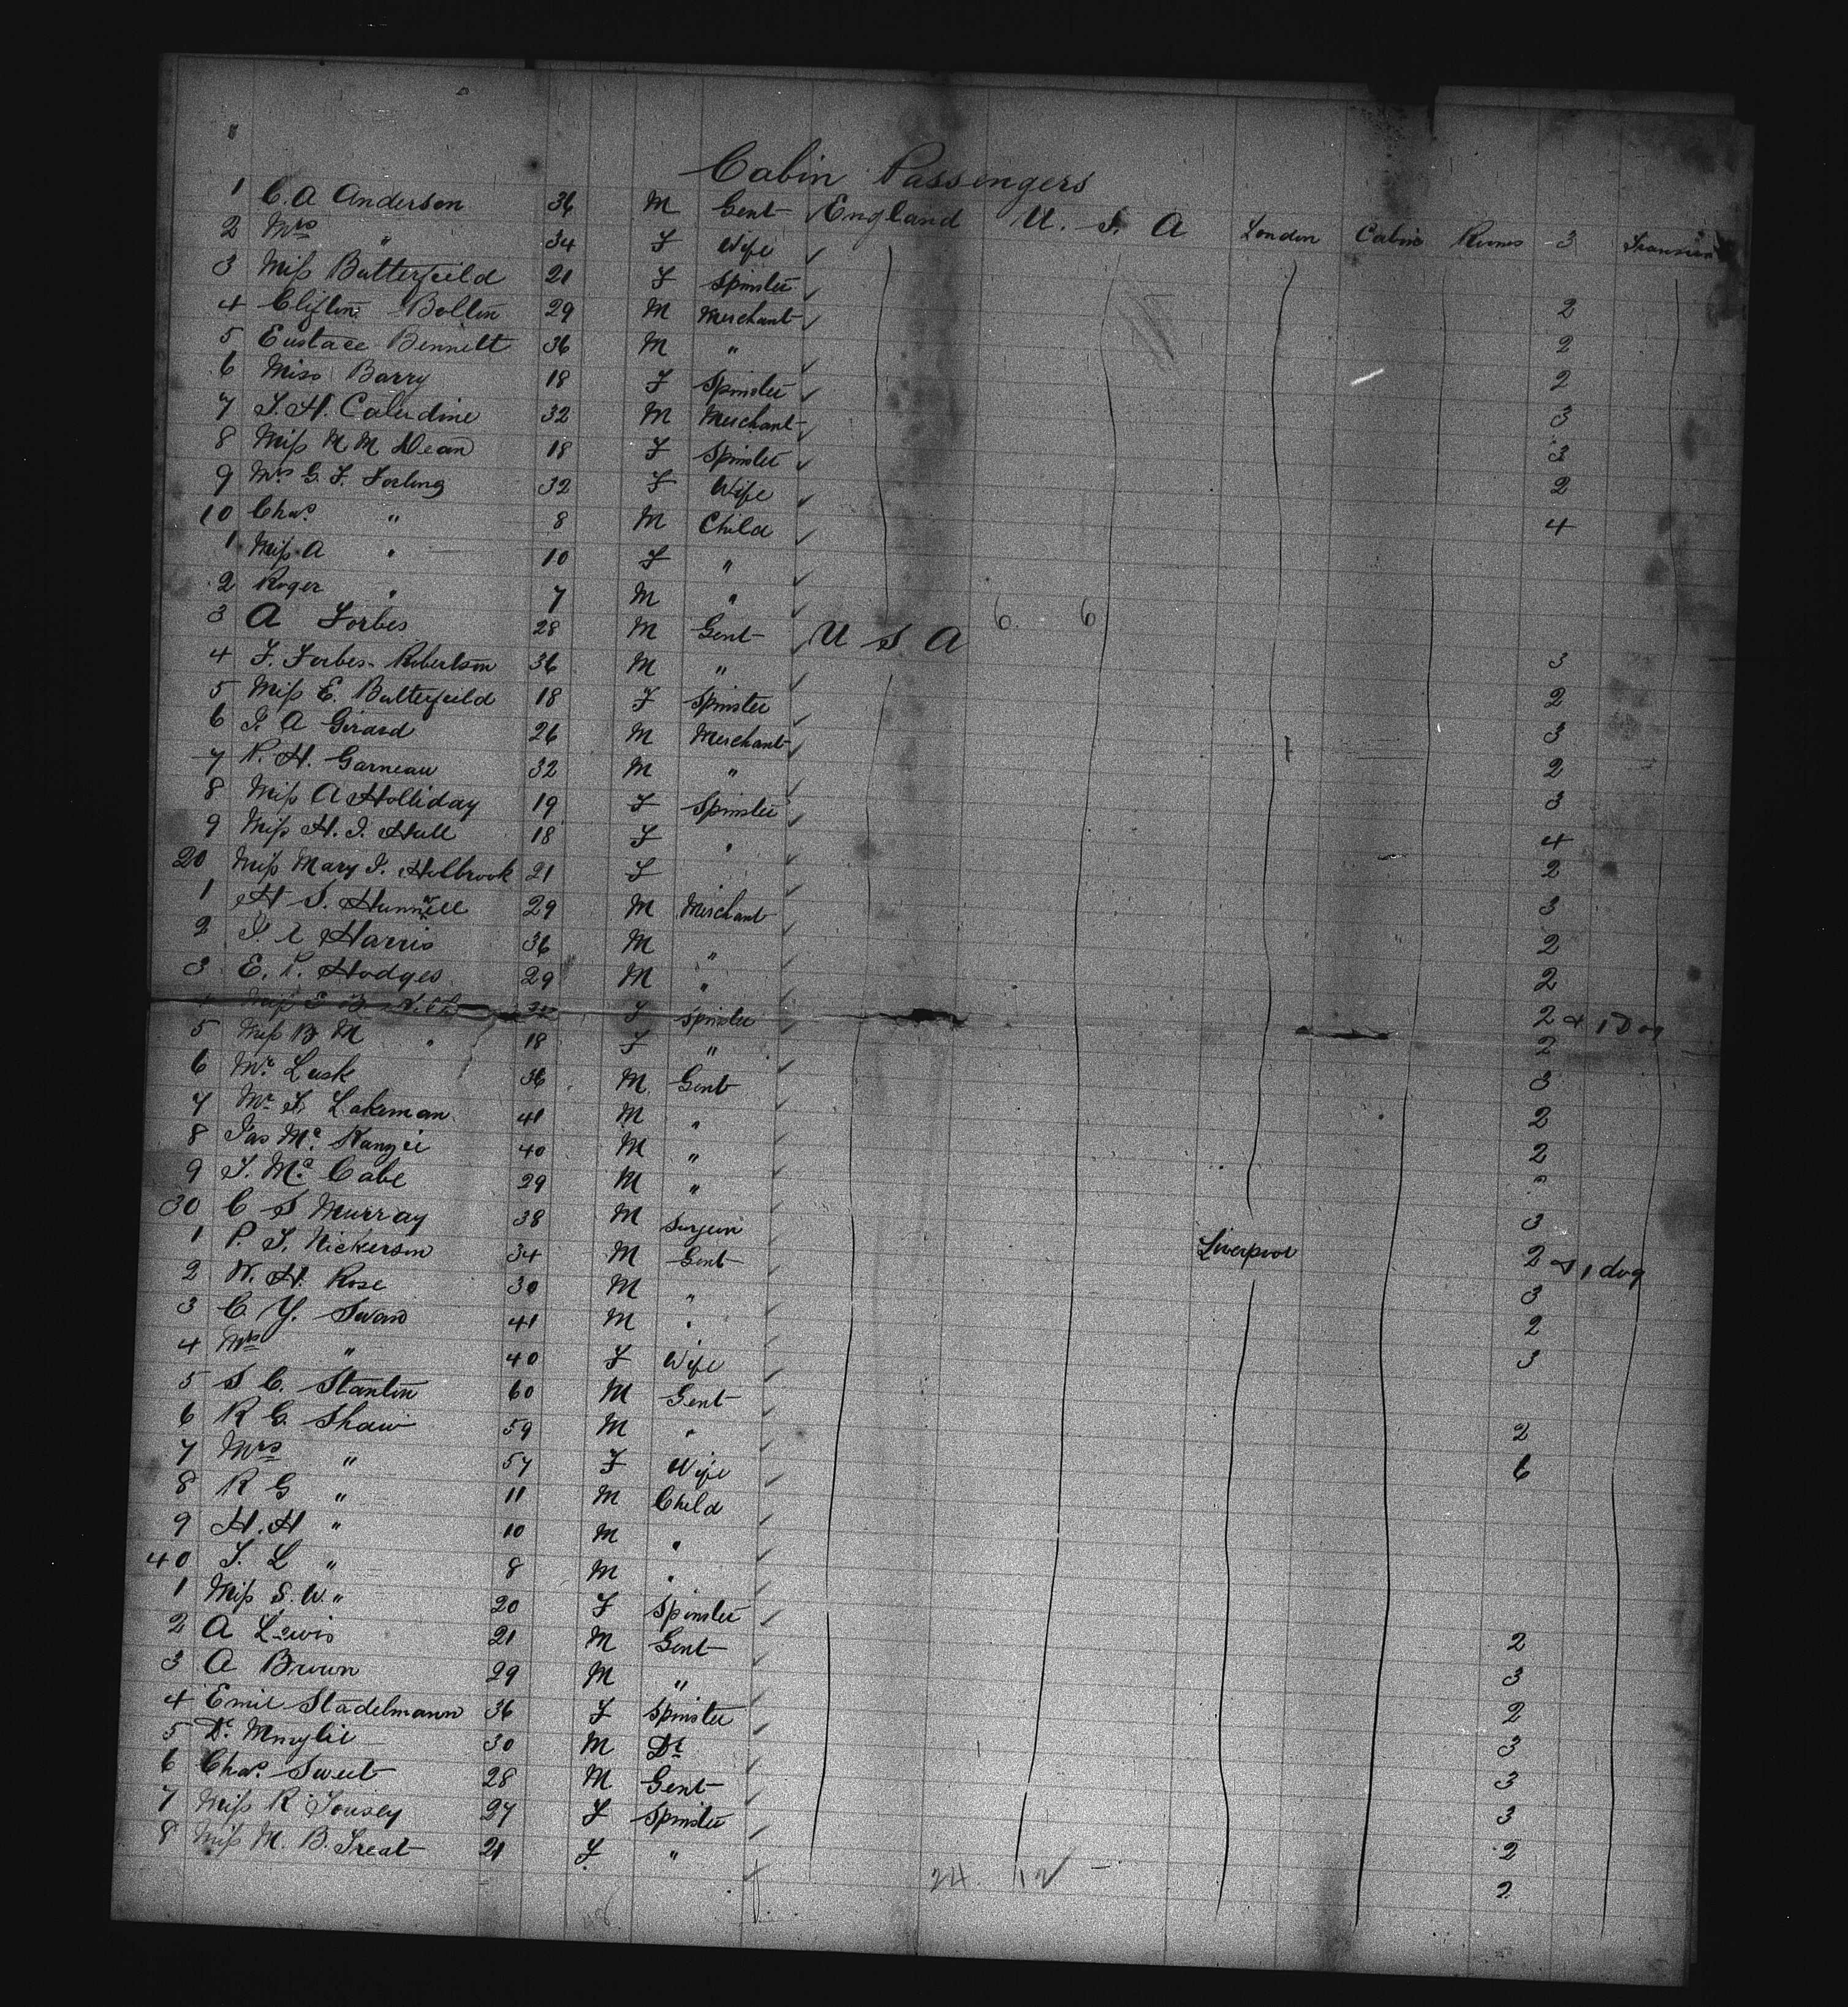 Cabin Passengers
1 C. A Anderson 36 M Gent England U. S. A London Cabin Rooms 3
2 Mrs " 34 F Wife
3 Miss Butterfeild 21 F Spinster 2
4 Clifton Bolton 29 M Merchant 2
5 Eustace Bennett 36 M " 2
6 Miss Barry 18 F Spinster 3
7 32 M Merchant 3
8 Miss M M Dean 18 F Spinster 2
9 Mrs G. F. 32 F Wife 4
10 Chas. " 8 M Child
1 Miss A " 10 F "
2 Roger " 7 M " 6 6
3 A Forbes 28 M Gent U S A 3
4 F. Forbes-Robertson 36 M " 2
5 Miss E. Butterfeild 18 F Spinster 3
6 J. A Girard 26 M Merchant 2
7 P. H. Garneau 32 M " 3
8 Miss A Holliday 19 F Spinster 4
9 Miss H. I. Hall 18 F " 2
20 Miss Mary I. Holbrook 21 F 3
1 H S. 29 M Merchant 2
2 Harris 36 M " 2
3 E. P. Hodges 29 M " 2 & 1 Dog
4 Miss E B F Spinster 2
5 Miss B M " 18 F " 3
6 Mr. Lusk 36 M Gent 2
7 Mr. F. Lakeman 41 M " 2
8 Jas Mc. Kanzie 40 M "
9 J. Mc. Cabe 29 M " 3
30 C S Murray 38 M Surgeon 2 & 1 dog
1 P. J. Nickerson 34 M Gent Liverpool 3
2 W. H. Rose 30 M " 2
3 C. Y. Swan 41 M " 3
4 Mrs " 40 F Wife
5 S C. Stanton 60 M Gent 2
6 R G. Shaw 59 M " 6
7 Mrs " 57 F Wife
8 R G " 11 M Child
9 H. H " 10 M "
40 J. L " 8 M "
1 Miss S. W. " 20 F Spinster 2
2 A Lewis 21 M Gent 3
3 A Brown 29 M " 2
4 Emil Stadelmann 36 F Spinster 3
5 Dr. 30 M Dr. 3
6 Chas. Sweet 28 M Gent 3
7 Miss R Tousey 27 F Spinster 2
8 Miss M. B. Treat 21 F " 2
24 12